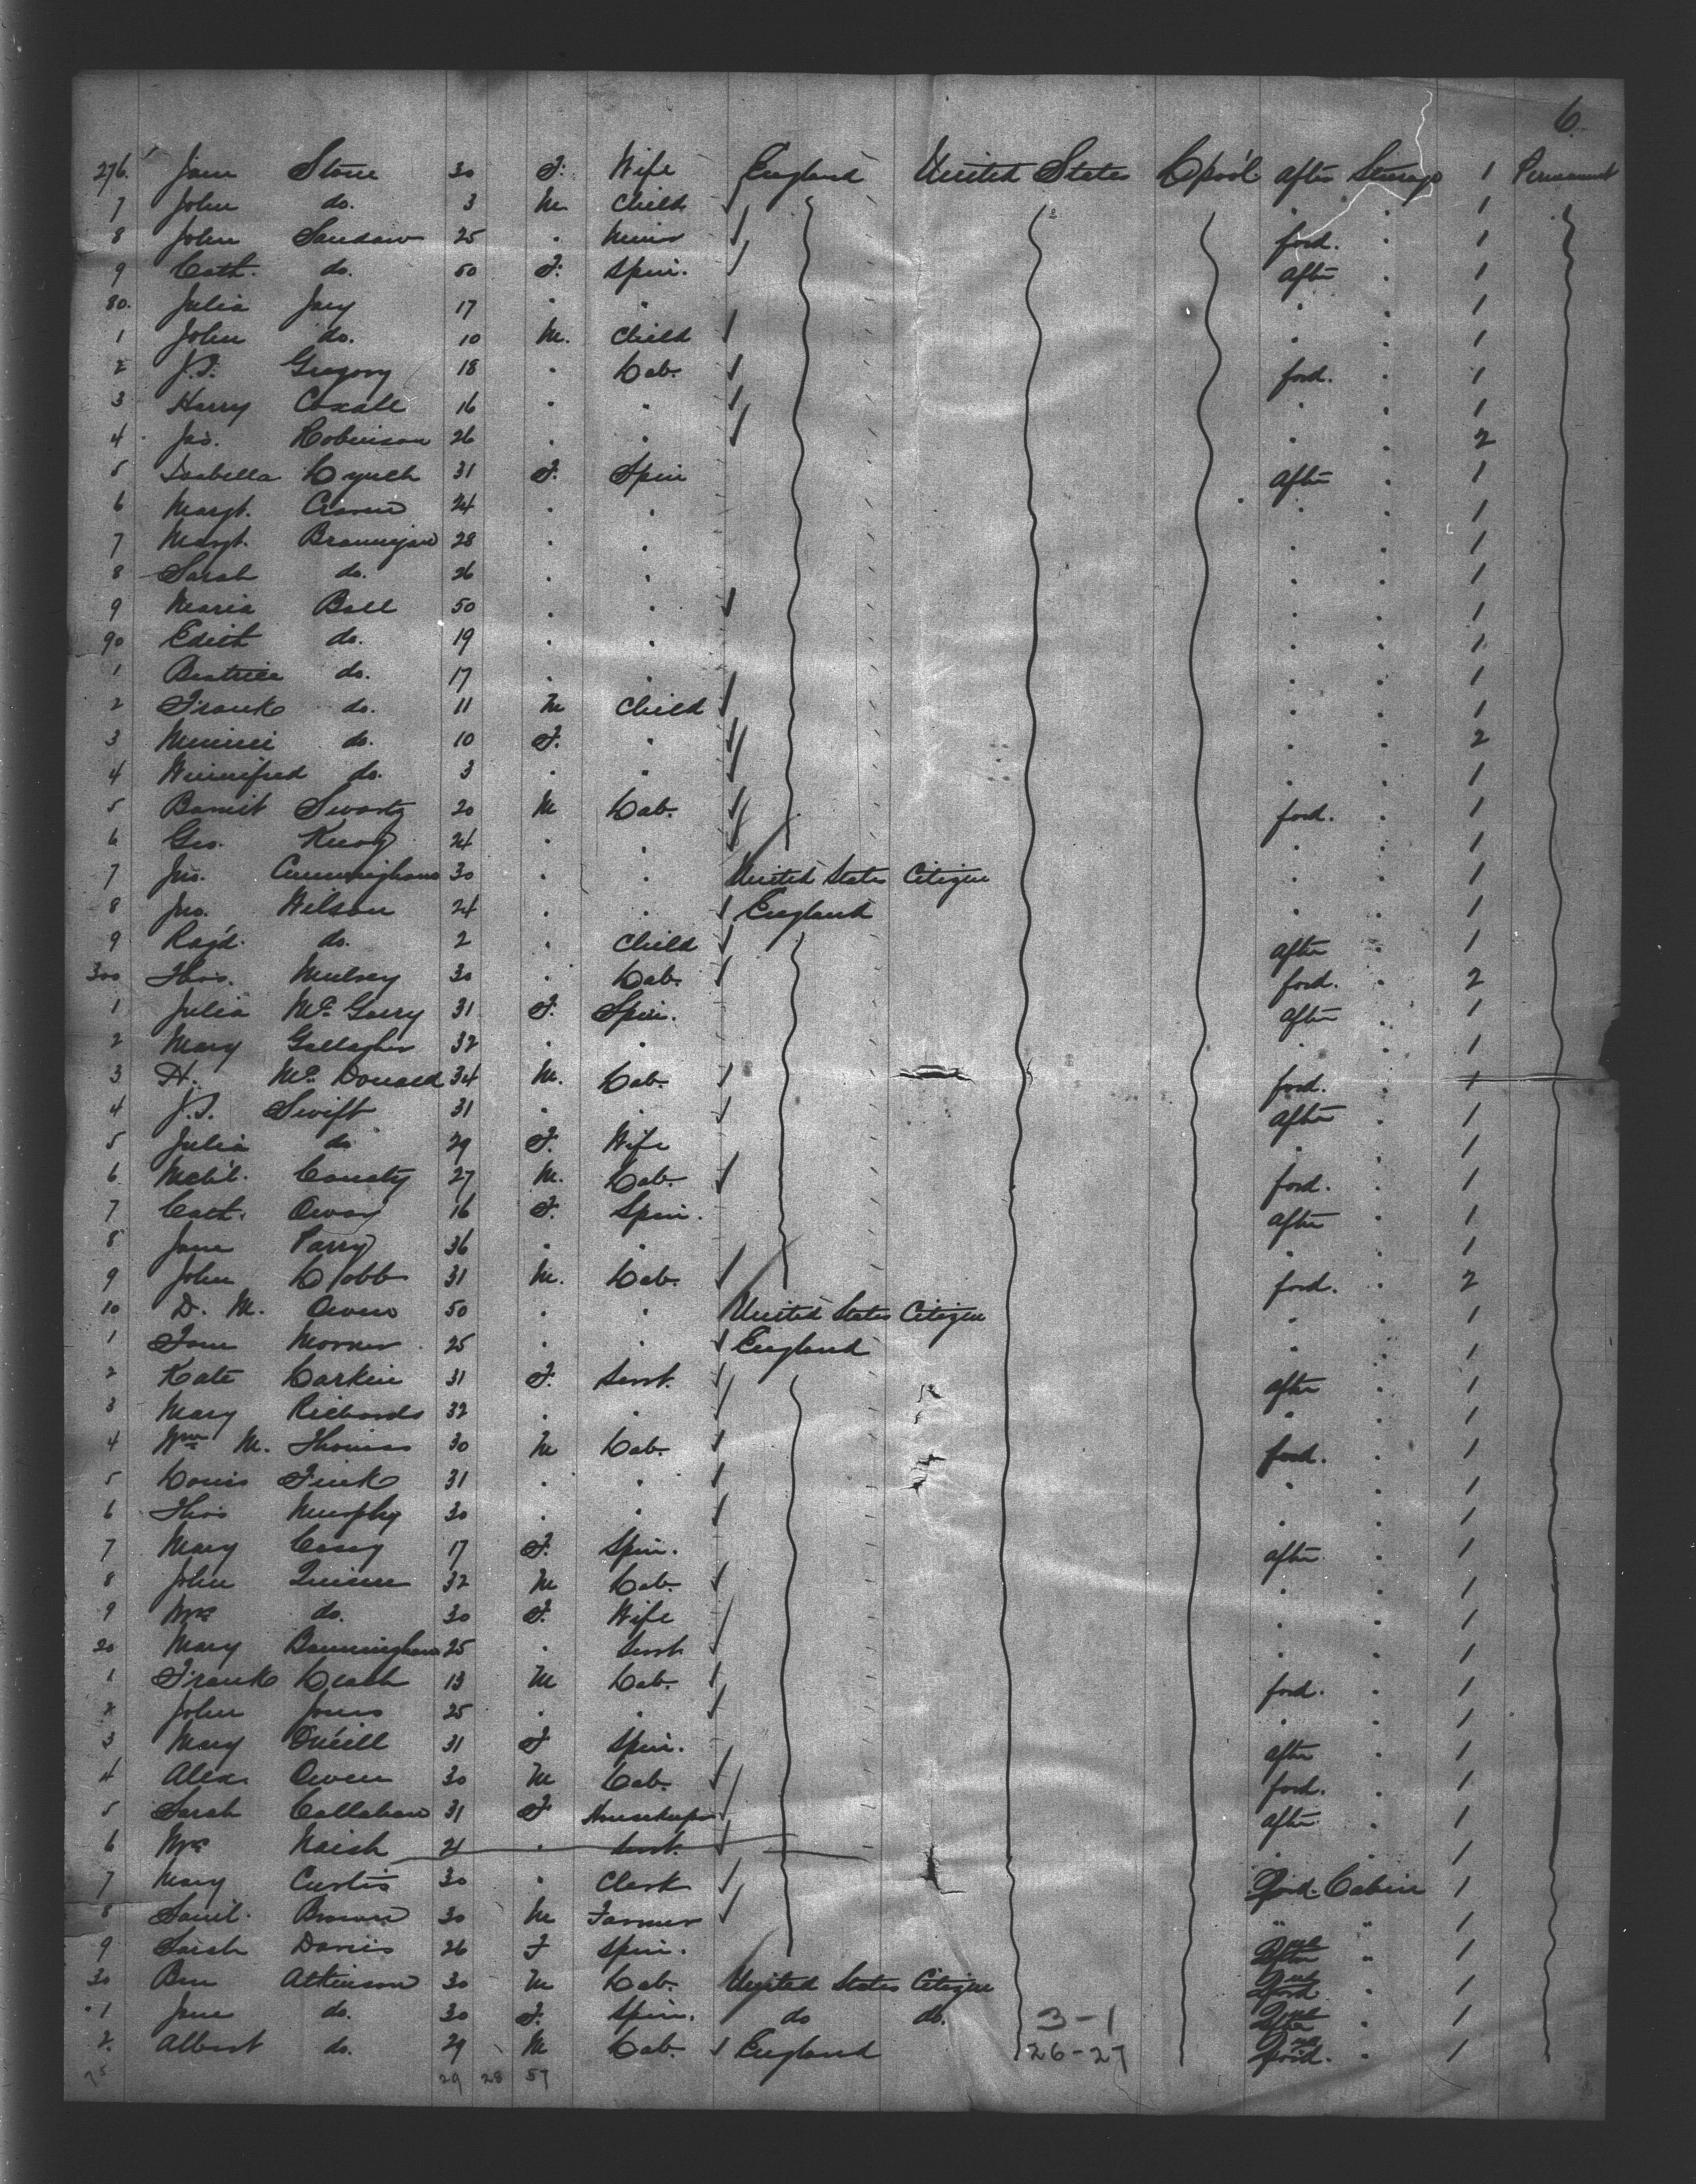 6.
276. Jane Stone 30 F. Wife England United States L'pool after Steerage 1 Permanent
7 John do. 3 M. Child . . 1
8 John 25 . Miner ford. . 1
9 Cath. do. 50 F. Spin. after . 1
80. Julia Jury 17 . . . . 1
1 John do. 10 M. Child . . 1
2 J.S. Gregory 18 . Lab. ford. . 1
3 Harry Coxall 16 . . . . 1
4 Jas. Robinson 26 . . . . 2
5 Isabella Lynch 31 F. Spin after . 1
6 Margt. Craven 24 . . . . 1
7 Margt. Brannigan 28 . . . . 1
8 Sarah do. 26 . . . . 1
9 Maria Ball 50 . . . . 1
90 Edith do. 19 . . . . 1
1 Beatrice do. 17 . . . . 1
2 Frank do. 11 M Child . . 1
3 Minnie do. 10 F. . . . 2
4 Winnifred do. 3 . . . . 1
5 Swartz 20 M Lab. ford. . 1
6 Geo. 24 . . . . 1
7 Jno. Cunningham 30 . . United States Citizen . . 1
8 Jno. Wilson 24 . . England . . 1
9 Rag'd. do. 2 . Child after . 1
300 Thos. Mulvey 30 . Lab. ford. . 2
1 Julia McGarry 31 F. Spin. after . 1
2 Mary Gallagher 32 . . . . 1
3 H. McDonald 34 M. Lab. ford. . 1
4 J.S. Swift 31 . . after . 1
5 Julia do 29 F. Wife . . 1
6 Mch'l. 27 M. Lab. ford. . 1
7 Cath. 16 F. Spin. after . 1
8 Jane Parry 36 . . . . 1
9 John 31 M. Lab. ford. . 2
10 D. M. Owen 50 . . United States Citizen . . 1
1 25 . . England . . 1
2 Kate Larkin 31 F. Servt. after . 1
3 Mary Richards 32 . . . . 1
4 Wm M. Thomas 30 M Lab. ford. . 1
5 Louis Fink 31 . . . . 1
6 Thos Murphy 30 . . . . 1
7 Mary Casey 17 F. Spin. after . 1
8 John Quinn 32 M Lab. . . 1
9 Mrs do. 30 F. Wife . . 1
20 Mary Banningham 25 . Servt . . 1
1 Frank Leash 13 M Lab. ford. . 1
2 John Jones 25 . . . . 1
3 Mary O'Neill 31 F Spin. after . 1
4 Alex. Owen 30 M Lab. ford. . 1
5 Sarah Callahan 31 F Housekeeper after . 1
6 Mrs Naish 21 . Servt. . . 1
7 Mary Curtis 30 . Clerk Cabin 1
8 Saml. Brown 30 M Farmer " " 1
9 Sarah Davies 26 F Spin. " 1
30 Ben Atkinson 30 M Lab. United States Citizen . 1
1 Jane do. 30 F. Spin. do do. 3-1 . 1
2. Albert do. 29 M Lab. England 26-27 . 1
29 28 57